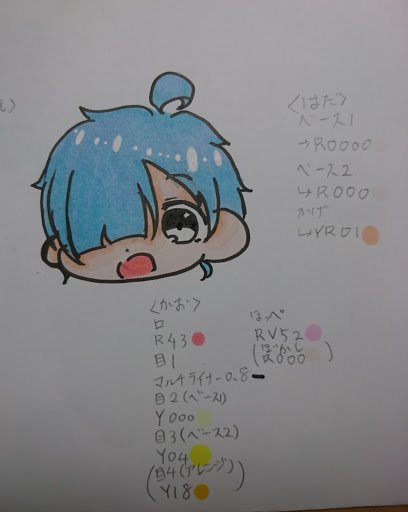 〈はだ〉
ベース1
→R0000
ベース2
↳R000
かげ
↳YR01
〈かお〉
口
R43
目1
マルチライナー0.8
目2(ベース1)
Y000
目3(ベース2)
Y04
(目4(アレンジ)
Y18)
ほっぺ
RV52
(ぼかし
R000)